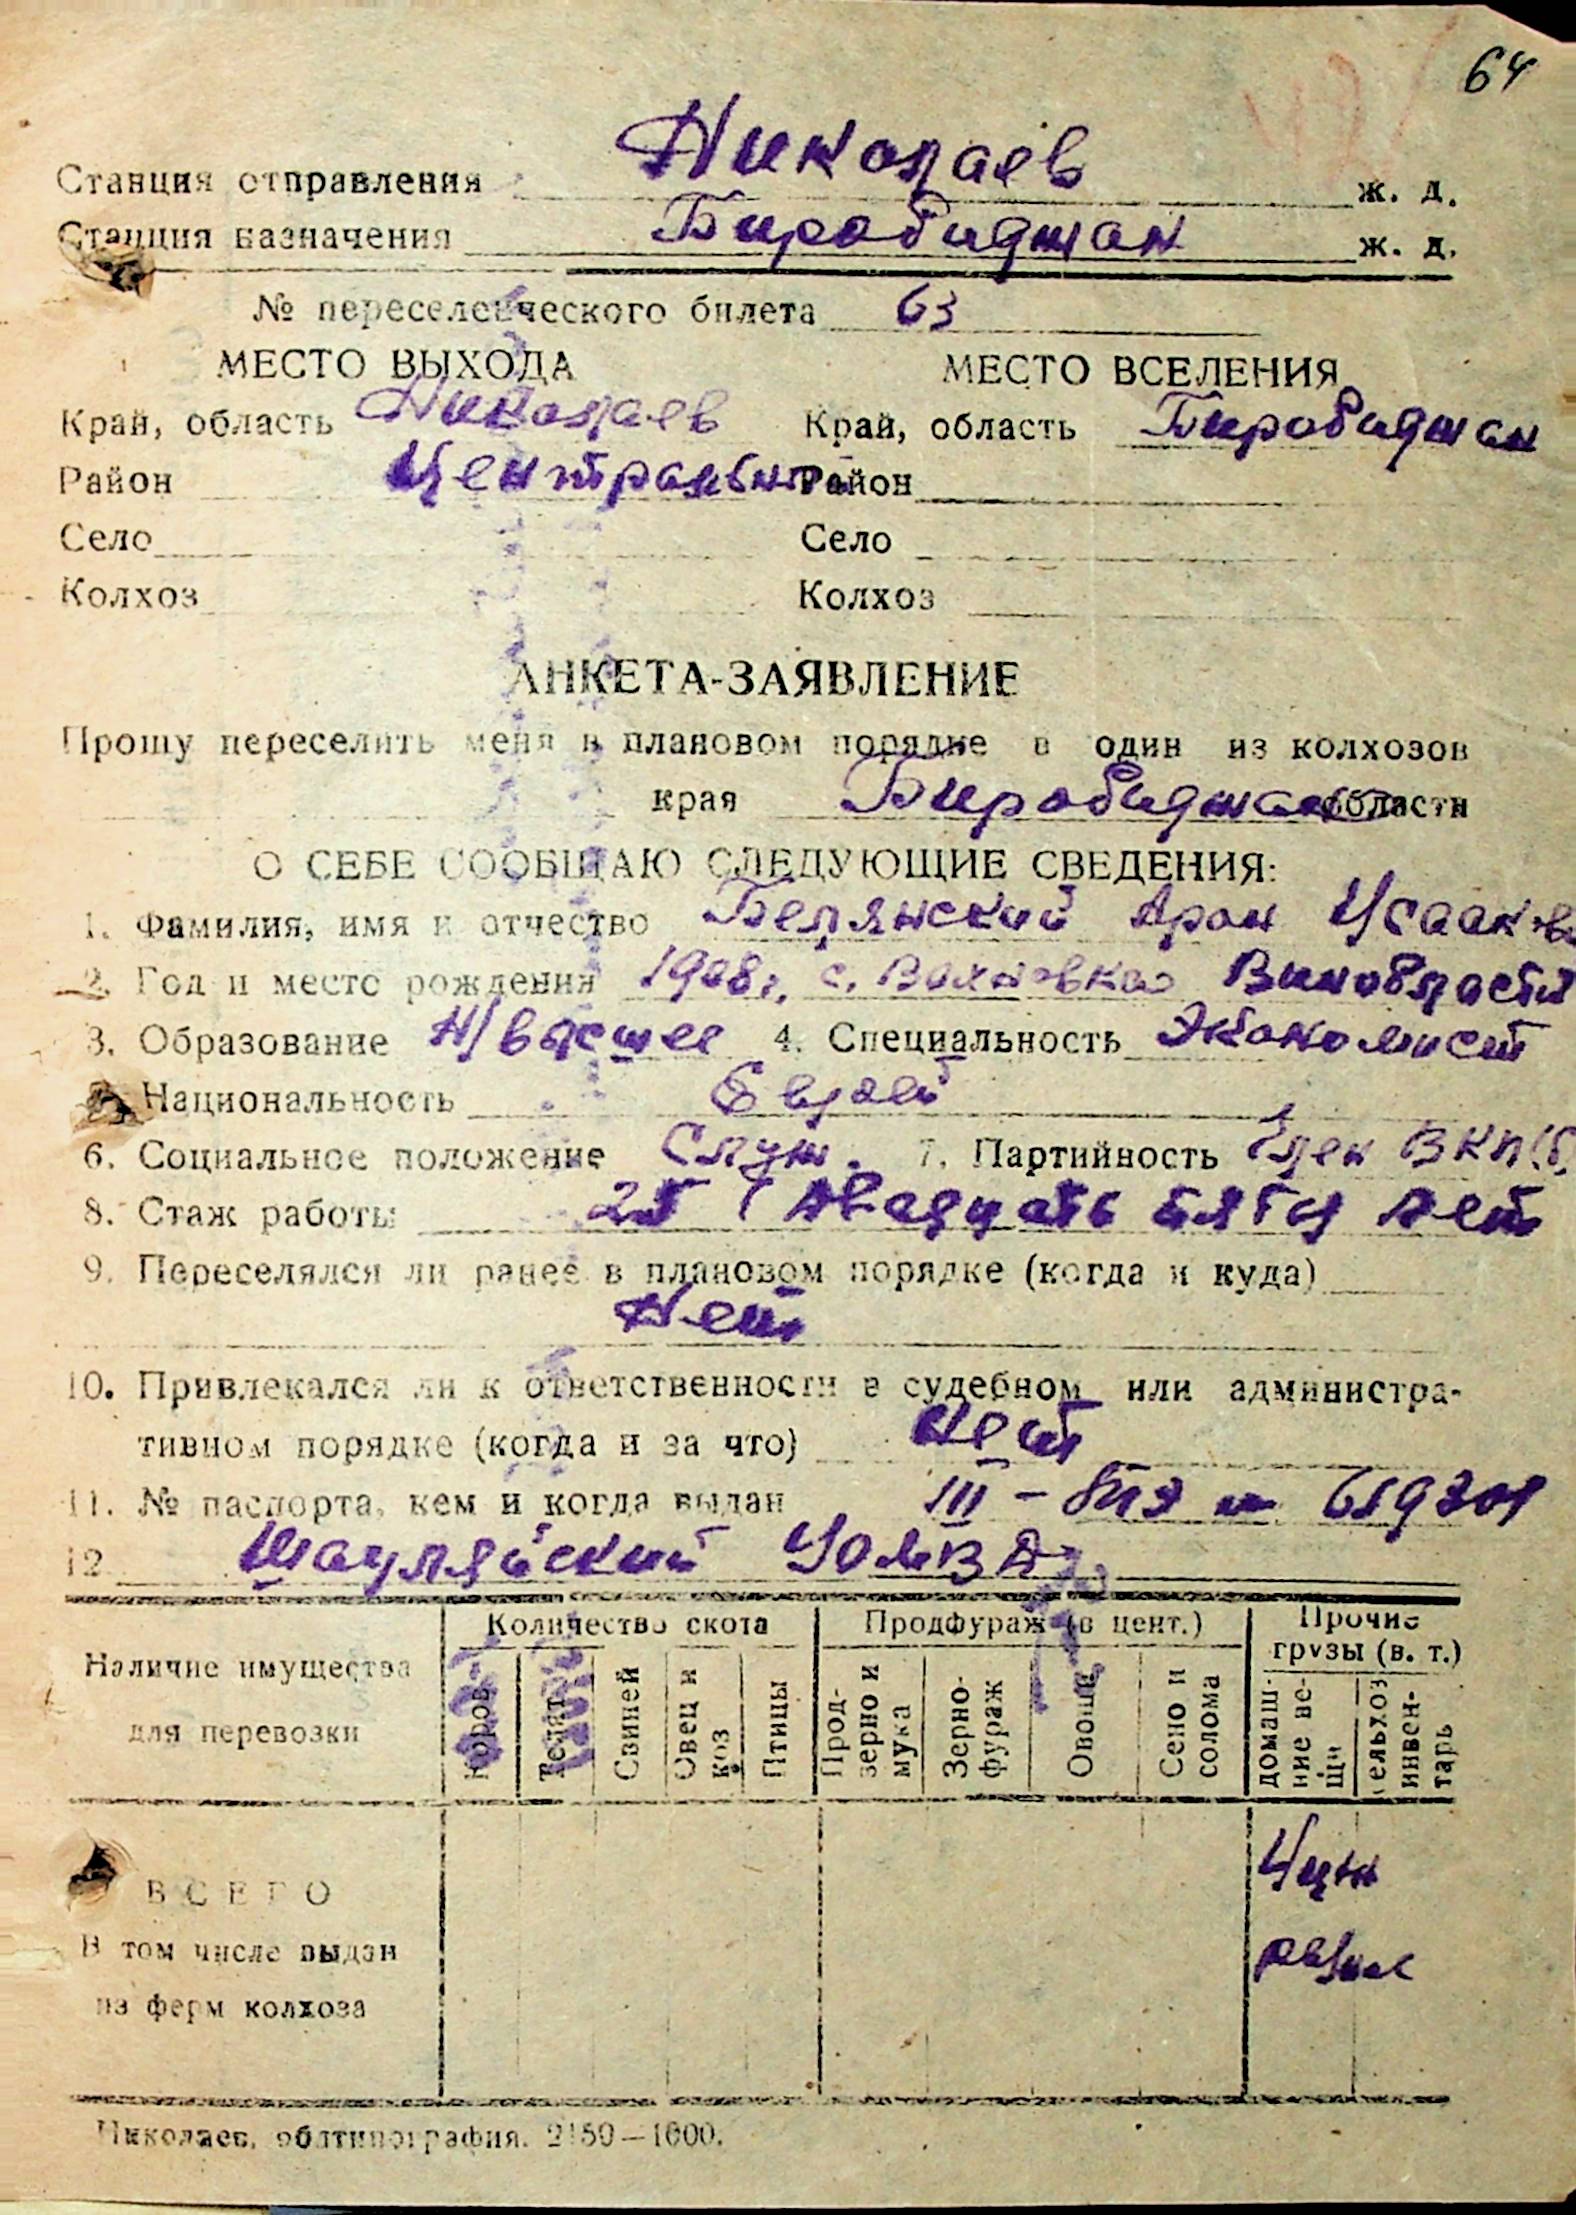 64
Николаев
Станция отправления ж. д.
Станция назначения Биробиджан ж. д.
№ переселенческого билета 63
МЕСТО ВЫХОДА МЕСТО ВСЕЛЕНИЯ
Край, область Николаев Край, область Биробиджан
Район Центральный Район
Село Село
Колхоз Колхоз
АНКЕТА-ЗАЯВЛЕНИЕ
Прошу переселить меня в плановом порядке в один из колхозов
края Биробиджанской области
О СЕБЕ СООБЩАЮ СЛЕДУЮЩИЕ СВЕДЕНИЯ:
1. Фамилия, имя и отчество Белянский Арон Исааков
2. Год и место рождения 1908 г. с. Вахновка Вин области
3. Образование Н/высшее 4. Специальность Экономист
Национальность Еврей
6. Социальное положение Служ. 7. Партийность Член ВКП(б)
8. Стаж работы 25 (двадцать пять лет
9. Переселялся ли ранее в плановом порядке (когда и куда)
Нет
10. Привлекался ли к ответственности в судебном или администра-
тивном порядке (когда и за что) Нет
11. № паспорта, кем и когда выдан III-
12 Шауляйский УОМВД
Наличие имущества для перевозки
Количество скота
Продфураж (в цент.)
Прочие грузы (в. т.)
Коров
Телят
Свиней
Овец и коз
Птицы
Прод-зерно и мука
Зерно-фураж
Овощи
Сено и солома
домаш-ние ве-щи
сельхоз инвен-тарь
ВСЕГО
В том числе выдан
из ферм колхоза
Николаев, облтипография. 2150—1600.